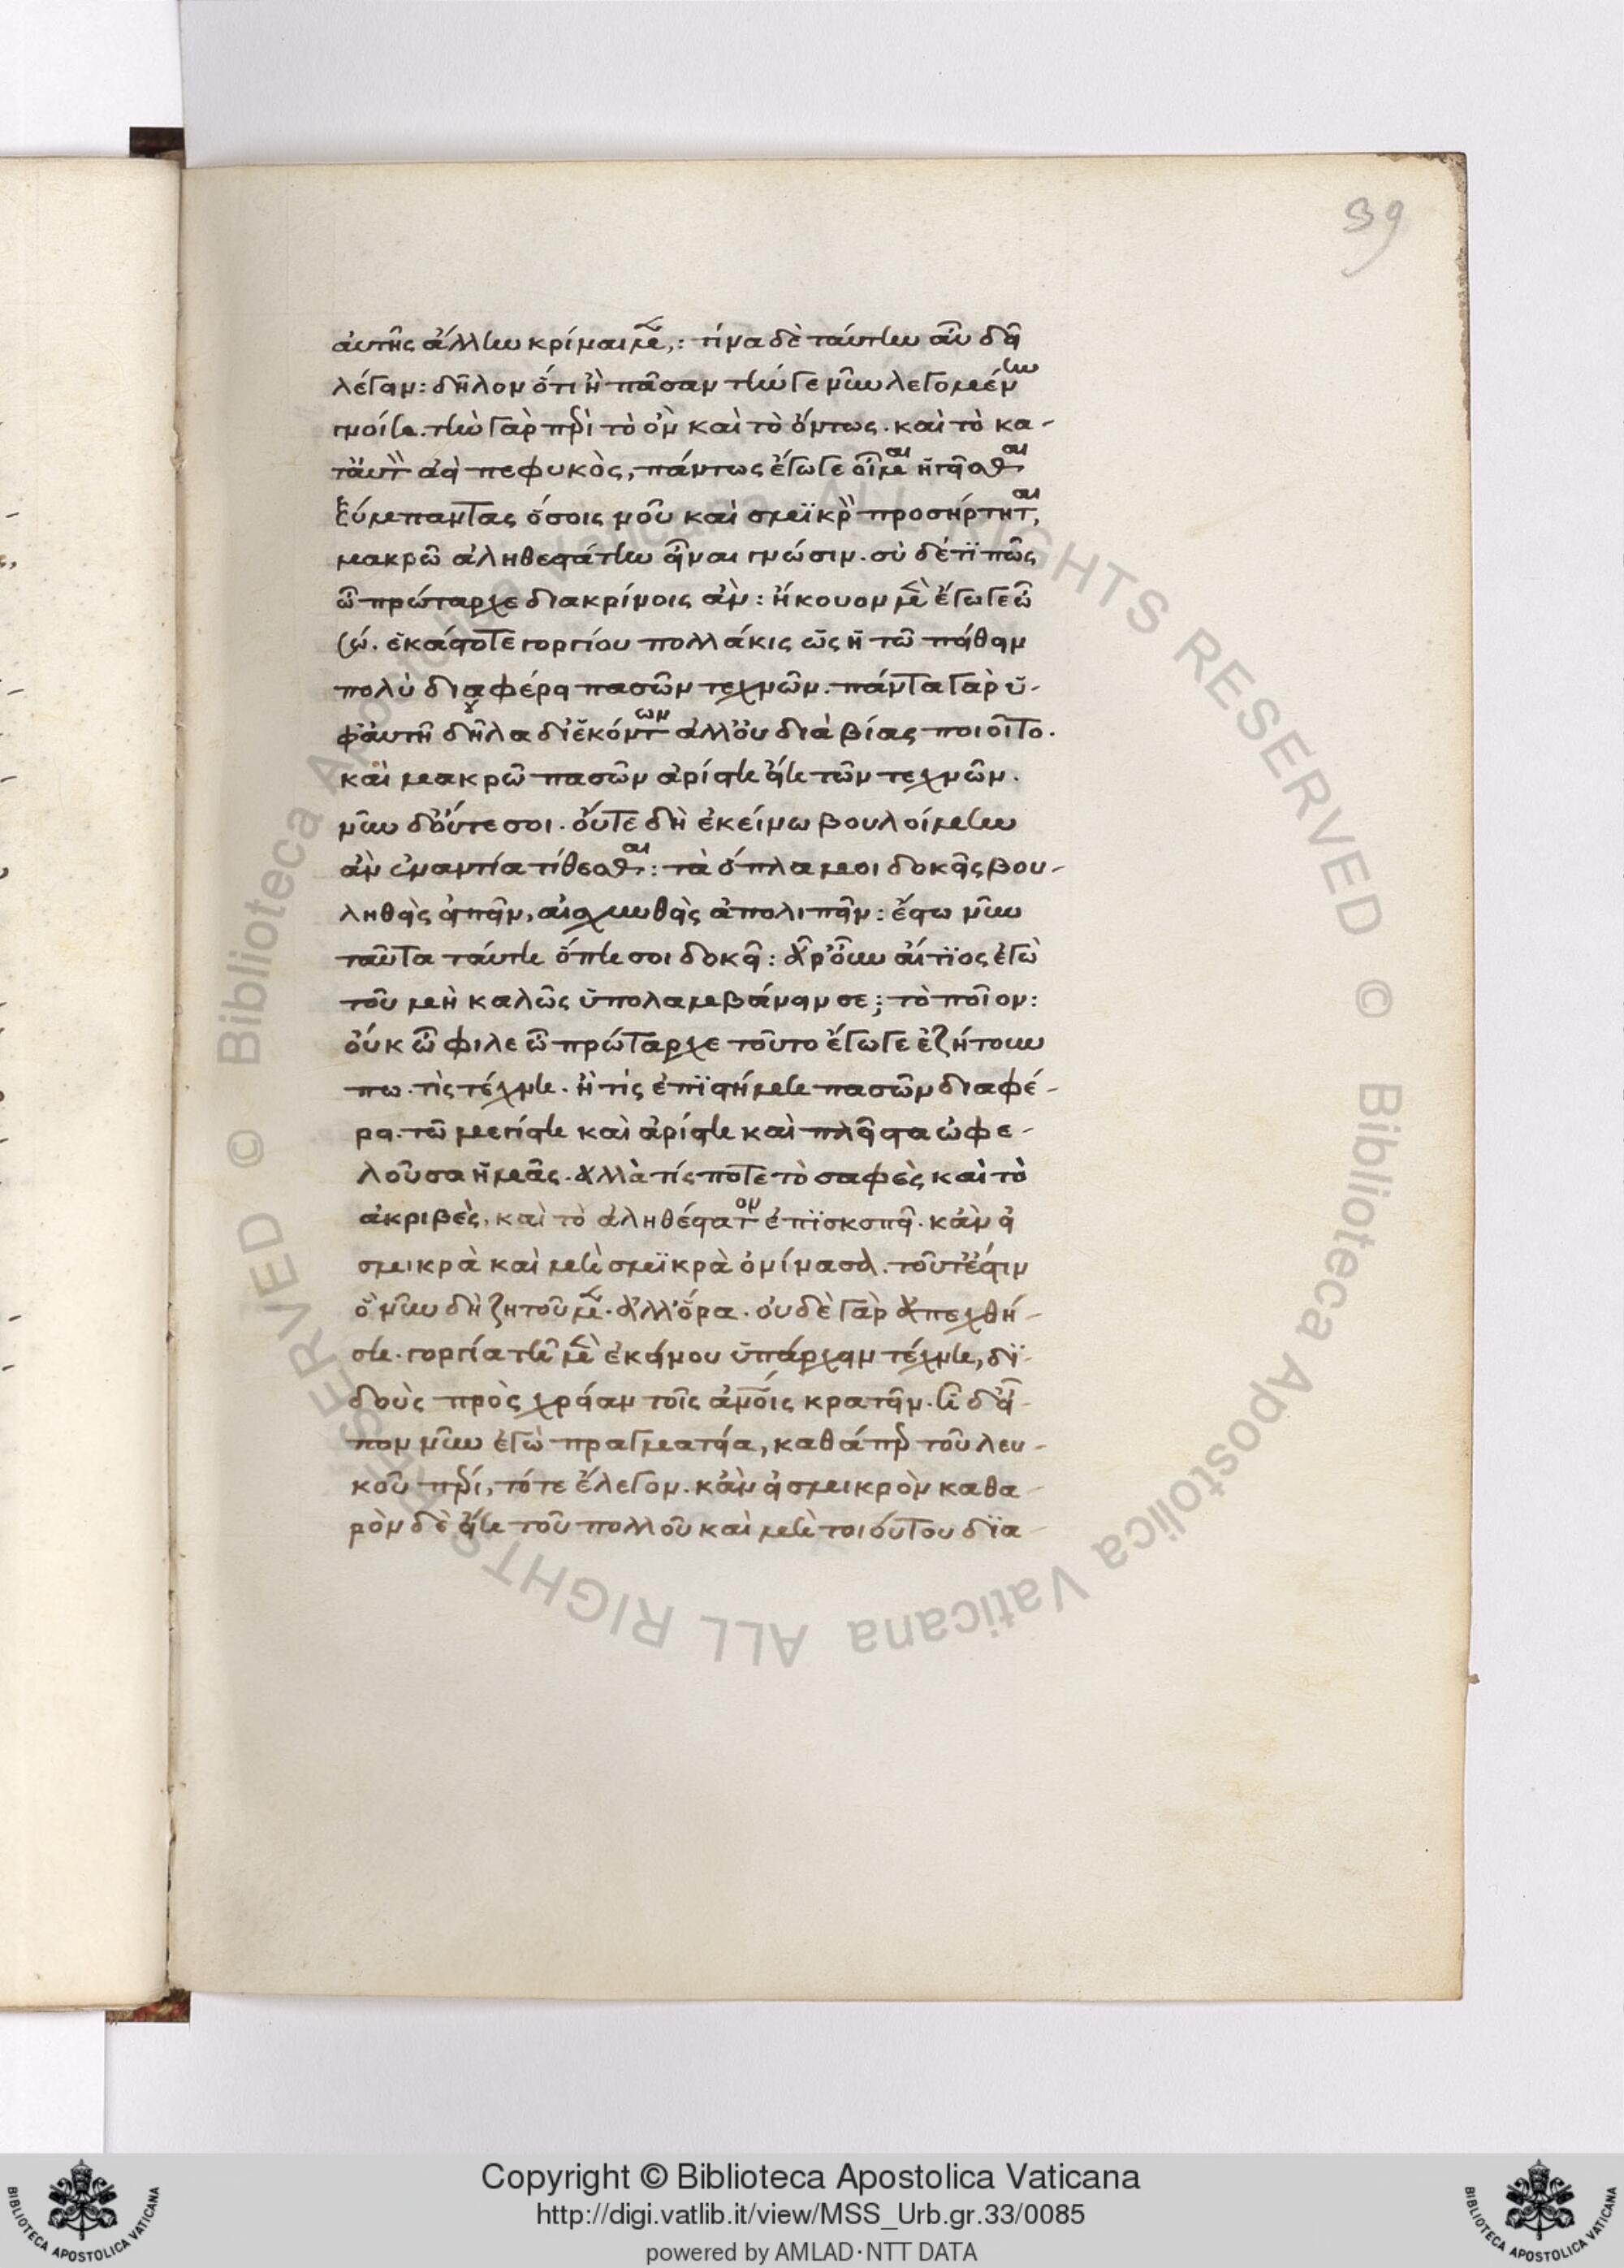 39
αὐτῆς ἄλλην κρίναιμεν: τίνα δὲ ταύτην αὖ δεῖ
λέγειν: δῆλον ὅτι ἢ πᾶσαν τήν γε νῦν λεγομένην
γνοίη. τὴν γὰρ περὶ τὸ ὂν καὶ τὸ ὄντως. καὶ τὸ κα-
ταὐτὸν ἀεὶ πεφυκὸς, πάντως ἔγωγε οἶμαι ἡγεῖσθαι
ξύμπαντας ὅσοις νοῦ καὶ σμϊκρὸν προσήρτηται,
μακρῶ ἀληθεστάτην εἶναι γνῶσιν. σὺ δέ τϊ πῶς
ὦ πρώταρχε διακρίνοις ἄν: ἤκουον μὲν ἔγωγε ὦ
σώ. ἑκάστοτε γοργίου πολλάκις ὡς ἡ τῶ πείθειν
πολὺ διαφέρει πασῶν τεχνῶν. πάντα γὰρ ὑ-
φ' αὑτῆ δοῦλα δι' ἑκόντων ἀλλ' οὐ διὰ βίας ποιοῖτο.
καὶ μακρῶ πασῶν ἀρίστη εἴη τῶν τεχνῶν.
νῦν δ' οὔτε σοι. οὔτε δὴ ἐκείνω βουλοίμην
ἂν ἐναντία τίθεσθαι: τὰ ὅπλα μοι δοκεῖς βου-
ληθεὶς εἰπεῖν, αἰσχυνθεὶς ἀπολιπεῖν: ἔστω νῦν
ταῦτα ταύτη ὅπη σοι δοκεῖ: ἆρ' οὖν αἴτϊος ἐγὼ
τοῦ μὴ καλῶς ὑπολαμβάνειν σε; τὸ ποῖον:
οὐκ ὦ φίλε ὦ πρώταρχε τοῦτο ἔγωγε ἐζήτουν
πω. τὶς τέχνη. ἢ τίς ἐπϊστήμη πασῶν διαφέ-
ρει. τῶ μεγίστη καὶ ἀρίστη καὶ πλεῖστα ὠφε-
λοῦσα ἡμᾶς. ἀλλὰ τίς ποτε τὸ σαφὲς καὶ τὸ
ἀκριβὲς, καὶ τὸ ἀληθέστατον ἐπϊσκοπεῖ. κἂν εἰ
σμικρὰ καὶ μὴ σμϊκρὰ ὀνίνασα. τοῦτ' ἔστιν
ὃ νῦν δὴ ζητοῦμεν. ἀλλ' ὅρα. οὐδὲ γὰρ ἀπεχθή-
ση. γοργία τῆ μὲν ἐκείνου ὑπάρχειν τέχνη, δϊ-
δοὺς πρὸς χρείαν τοῖς ἀνοίς κρατεῖν. ἦ δ' εἶ-
πον νῦν ἐγὼ πραγματεία, καθάπερ τοῦ λευ-
κοῦ περί, τότε ἔλεγον. κἂν εἰ σμικρὸν καθα-
ρὸν δὲ εἴη τοῦ πολλοῦ καὶ μὴ τοιούτου δϊα-
Copyright © Biblioteca Apostolica Vaticana
http://digi.vatlib.it/view/MSS_Urb.gr.33/0085
powered by AMLAD·NTT DATA